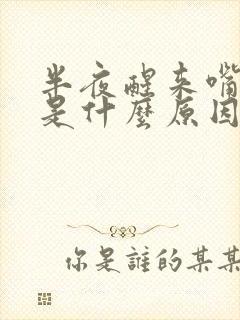 半夜醒来嘴
是什麼原因
你是誰的某某